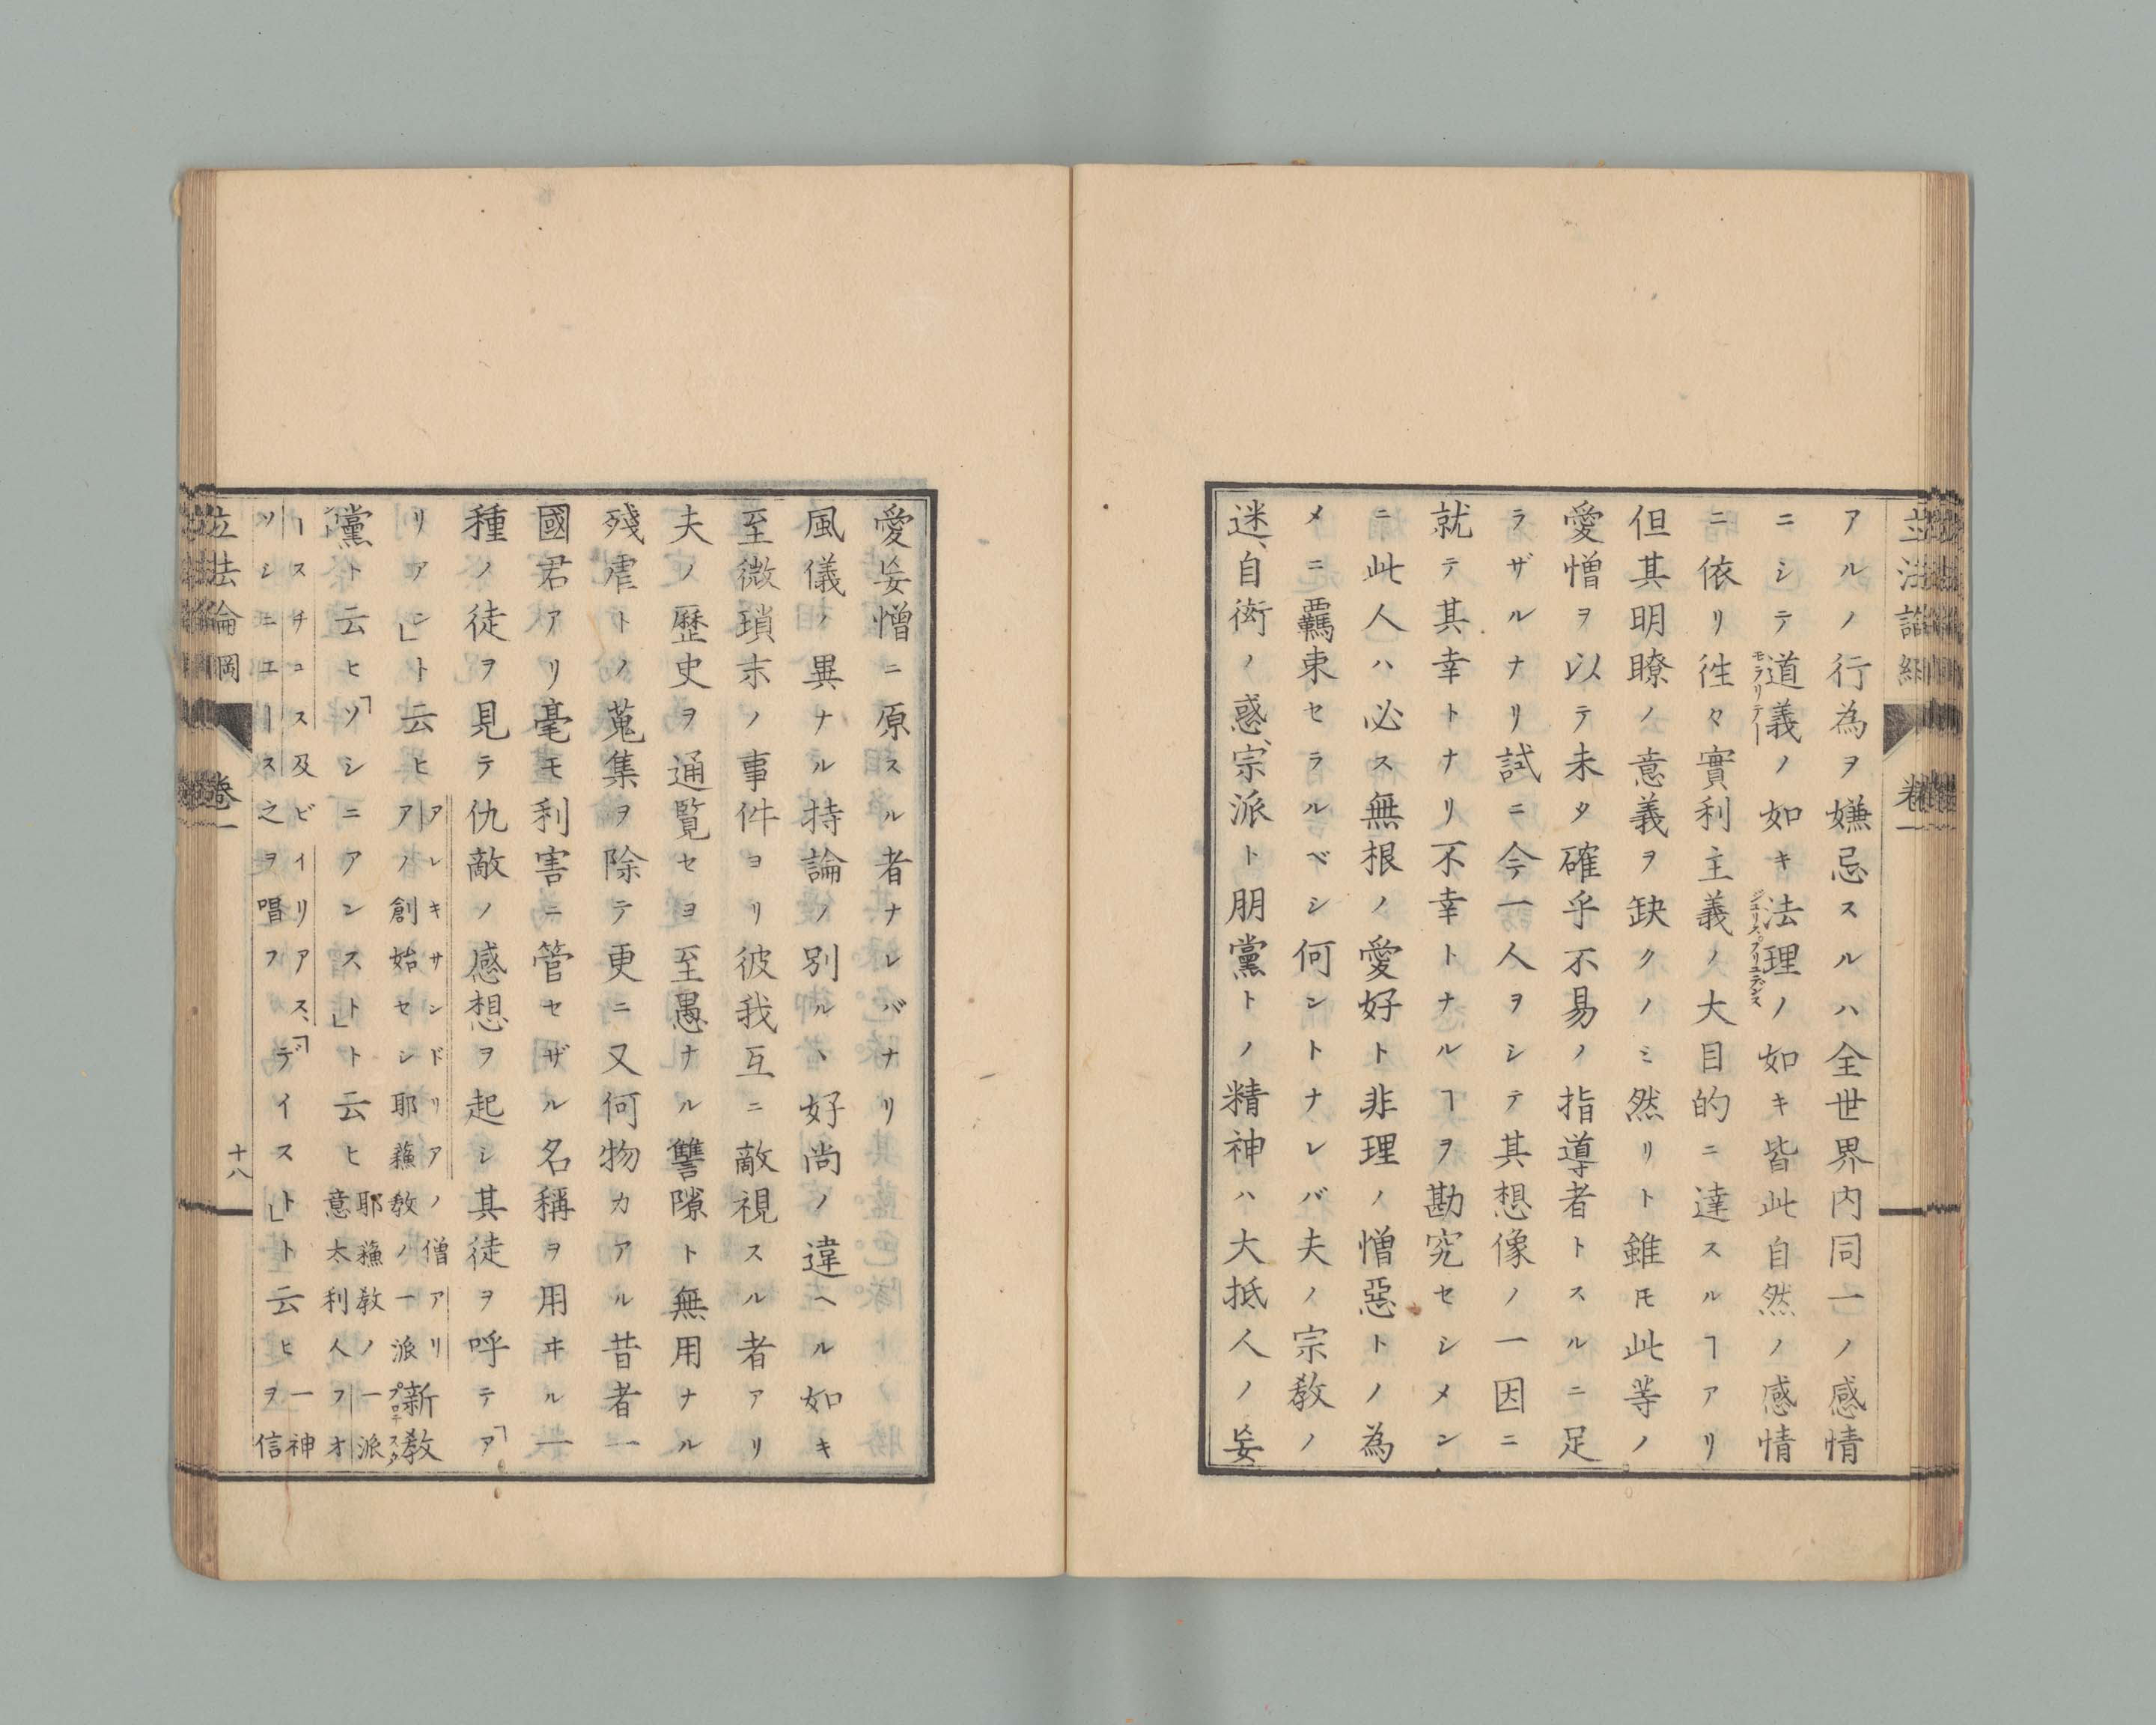 立法論綱 卷一
アルノ行為ヲ嫌忌スルハ全世界内同一ノ感情
ニシテ道義ノ如キ法理ノ如キ皆此自然ノ感情
モラリテー
ジュリスプリュデンス
ニ依リ徃々實利主義ノ大目的ニ達スルヿアリ
但其明瞭ノ意義ヲ缺クノミ然リト雖モ此等ノ
愛憎ヲ以テ未タ確乎不易ノ指導者トスルニ足
ラザルナリ試ニ今一人ヲシテ其想像ノ一因ニ
就テ其幸トナリ不幸トナルヿヲ勘究セシメン
ニ此人ハ必ス無根ノ愛好ト非理ノ憎惡トノ為
メニ羈束セラルベシ何ントナレバ夫ノ宗教ノ
迷、自衒ノ惑、宗派ト朋黨トノ精神ハ大抵人ノ妄
愛妄憎ニ原スル者ナレバナリ
風儀ノ異ナル特論ノ別ルヽ好尚ノ違ヘル如キ
至微瑣末ノ事件ヨリ彼我互ニ敵視スル者アリ
夫ノ歷史ヲ通覽セヨ至愚ナル讐隙ト無用ナル
殘虐トノ蒐集ヲ除テ更ニ又何物カアル昔者一
國君アリ毫モ利害ニ管セザル名稱ヲ用ヰル一
種ノ徒ヲ見テ仇敵ノ感想ヲ起シ其徒ヲ呼テ「ア
リアン」ト云ヒアレキサンドリアノ僧アリアノ創始セシ耶蘓教ノ一派新教
プロテスタ
黨ト云ヒ「ソシニアンスト」ト云ヒ耶蘓教ノ一派意太利人フオ
ースチユス及ビイリアス、ソシニエース之ヲ唱フ「デイスト」ト云ヒ一神ヲ信
立法論綱 卷一 十八